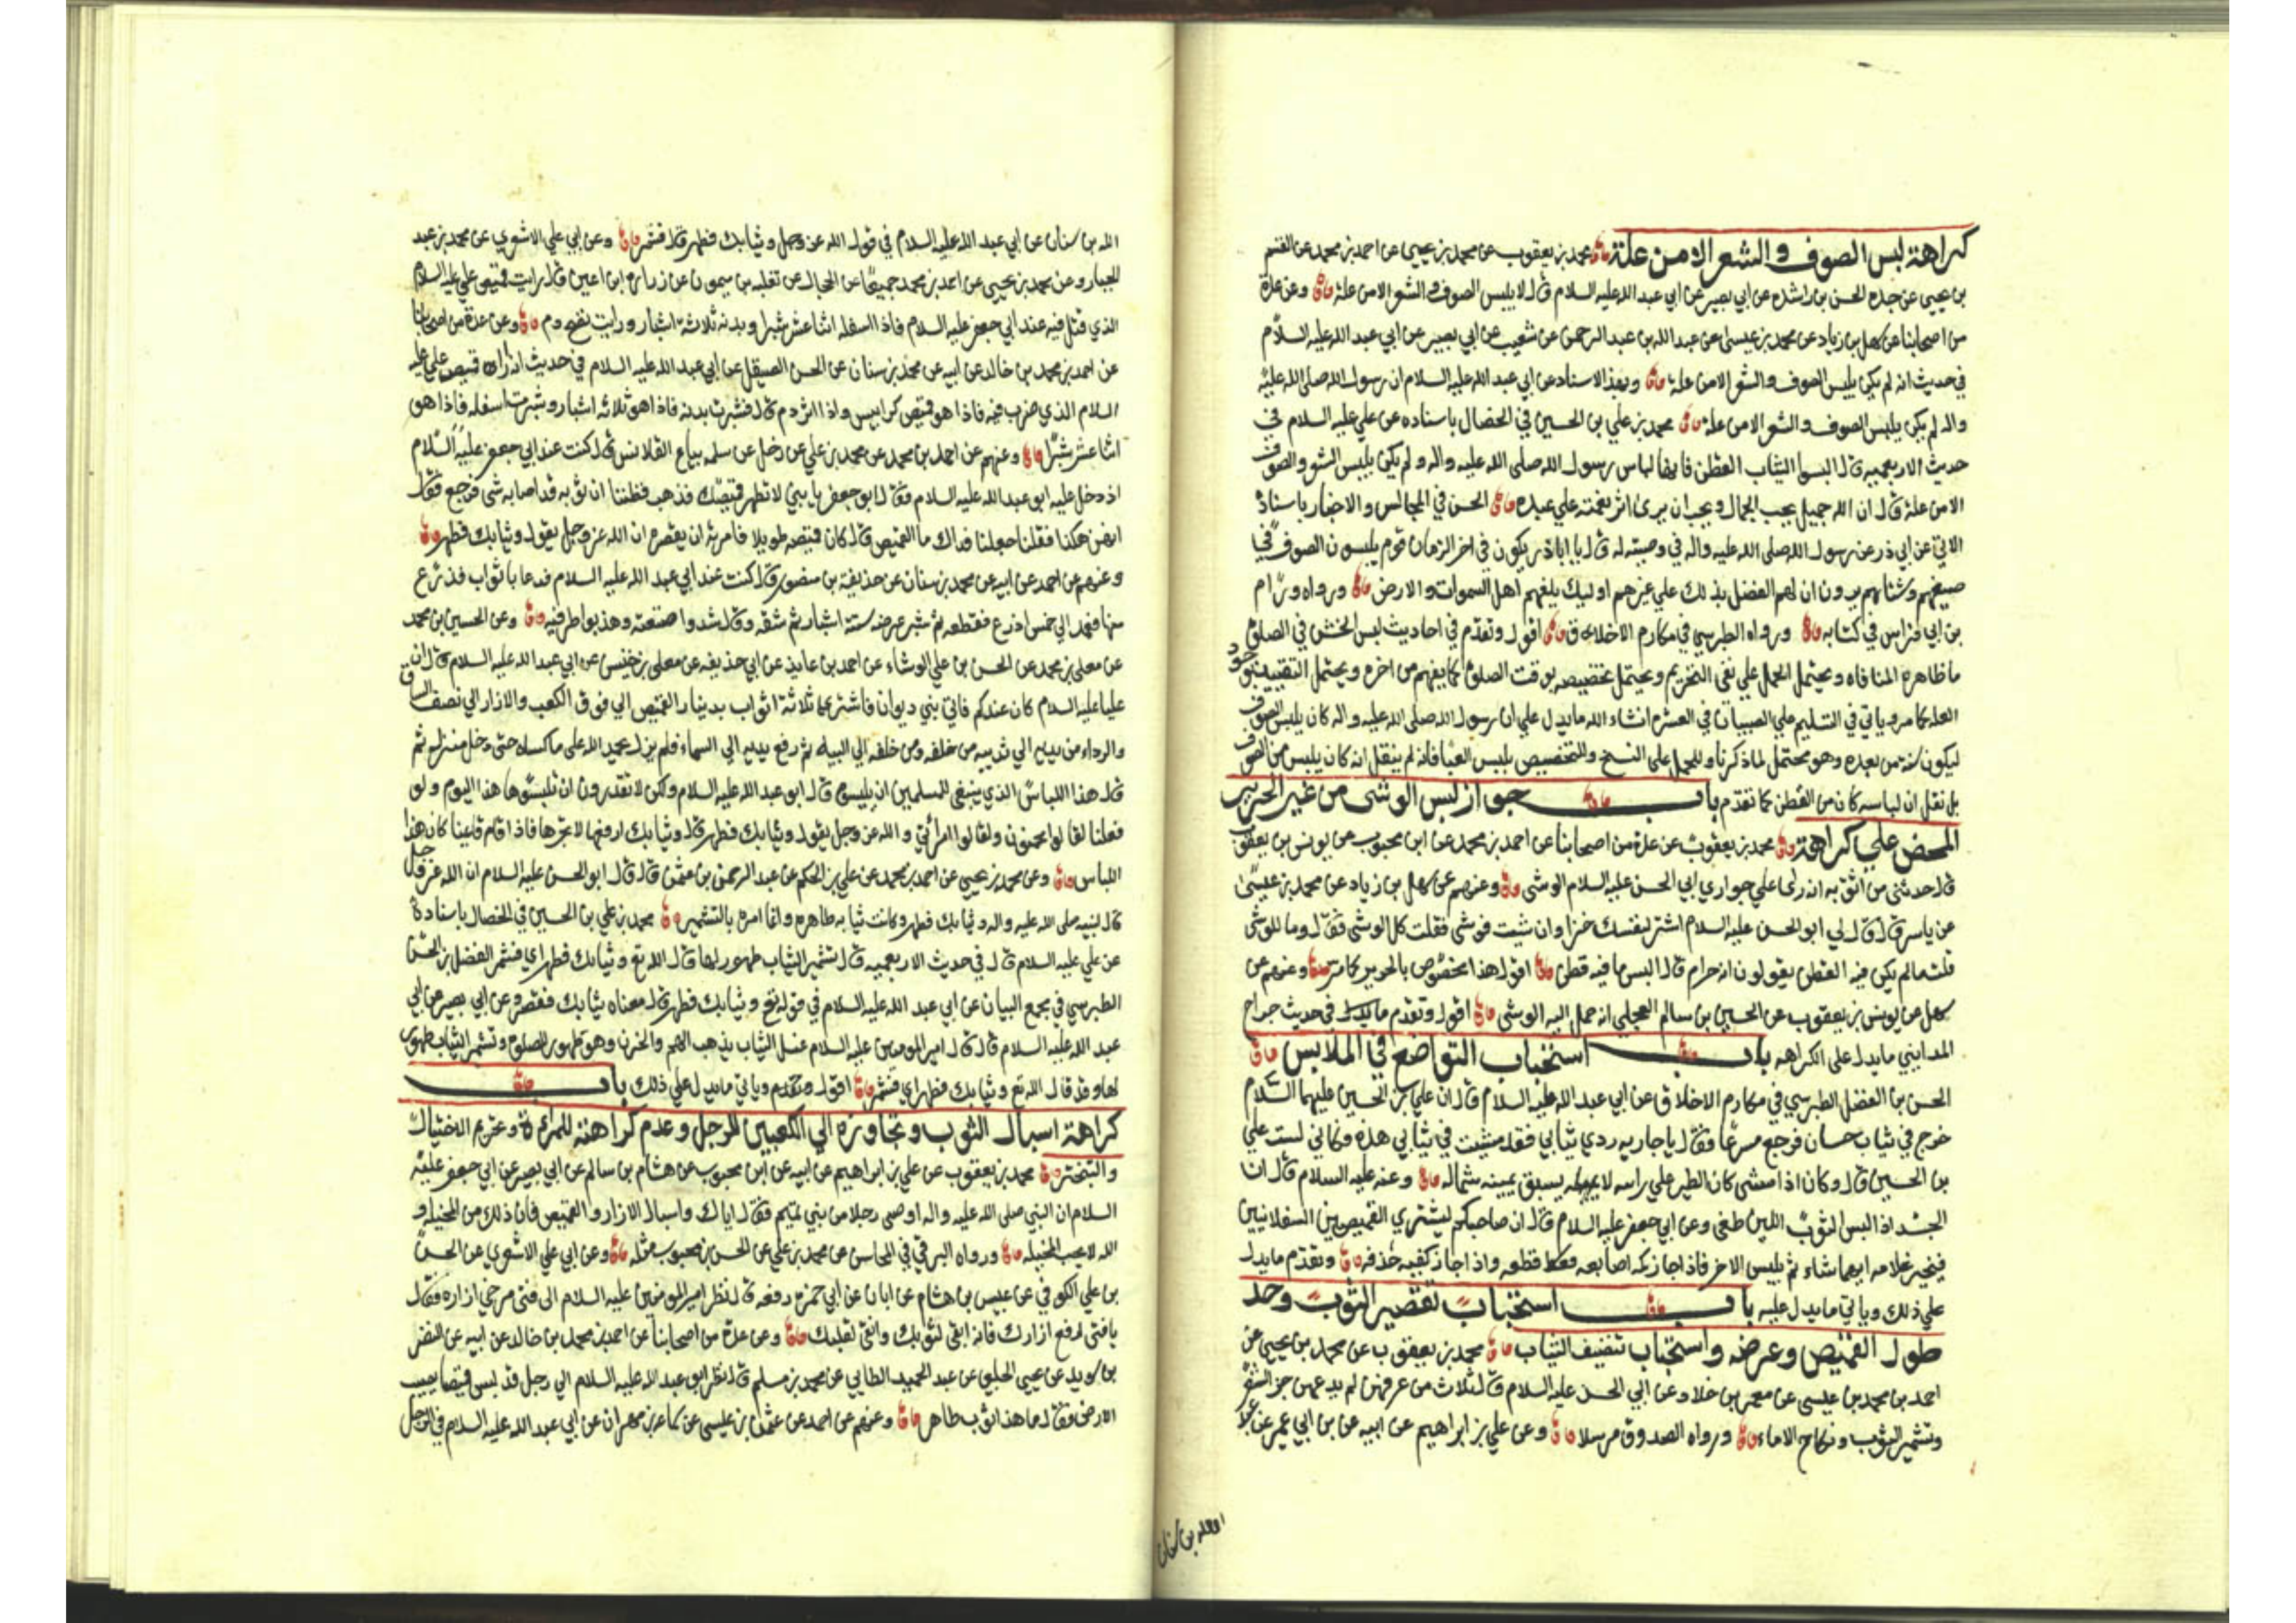 كراهة لبس الصوف والشعر الا من علة محمد بن يعقوب عن محمد بن يحيى عن احمد بن محمد عن القسم
بن يحيى عن جده الحسن بن راشد عن ابي بصير عن ابي عبد الله عليه السلام قال لا يلبس الصوف والشعر الا من علة وعن عدة
من اصحابنا عن سهل بن زياد عن محمد بن عيسى عن عبد الله بن عبد الرحمن عن شعيب عن ابي بصير عن ابي عبد الله عليه السلام
في حديث انه لم يكن يلبس الصوف والشعر الا من علة وبهذا الاسناد عن ابي عبد الله عليه السلام ان رسول الله صلى الله عليه
واله لم يكن يلبس الصوف والشعر الا من علة محمد بن علي بن الحسين في الخصال باسناده عن علي عليه السلام في
حديث الاربعمية قال البسوا الثياب القطن فانها لباس رسول الله صلى الله عليه واله ولم يكن يلبس الشعر والصوف
الا من علة قال ان الله جميل يحب الجمال ويحب ان يرى اثر نعمته علي عبده الحسن في المجالس والاخبار باسناده
الاتي عن ابي ذر عن رسول الله صلى الله عليه واله في وصيته له قال يا اباذر يكون في اخر الزمان قوم يلبسون الصوف في
صيفهم وشتائهم يرون ان لهم الفضل بذلك علي غيرهم اوليك يلعنهم اهل السموات والارض ورواه ورّام
بن ابي فراس في كتابه ورواه الطبرسي في مكارم الاخلاق اقول وتقدم في احاديث لبس الخشن في الصلوة
ما ظاهره المنافاه ويحتمل الحمل علي نفي التحريم ويحتمل تخصيصه بوقت الصلوة كما يفهم من اخره ويحتمل التقييد بوجود
العلة كما مر وياتي في التسليم علي الصبيان في العشرة انشاء الله ما يدل علي ان رسول الله صلى الله عليه واله كان يلبس الصوف
ليكون سنة من بعده وهو محتمل لما ذكرنا وللحمل على النسخ وللتخصيص بلبس العبا فانه لم ينقل انه كان يلبس من الصوف
بل نقل ان لباسه كان من القطن كما تقدم باب جواز لبس الوشي من غير الحرير
المحض علي كراهة محمد بن يعقوب عن عدة من اصحابنا عن احمد بن محمد عن ابن محبوب عن يونس بن يعقوب
قال حدثني من اثق به انه رأى علي جواري ابي الحسن عليه السلام الوشي وعنهم عن سهل بن زياد عن محمد بن عيسى
عن ياسر قال قال لي ابو الحسن عليه السلام اشتر لنفسك خزا وان شيت فوشي فقلت كل الوشي فقال وما الوشي
قلت ما لم يكن فيه القطن يقولون انه حرام قال البس ما فيه قطن اقول هذا مخصوص بالحرير كما مر وعنهم عن
سهل عن يونس بن يعقوب عن الحسين بن سالم العجلي انه حمل اليه الوشي اقول وتقدم ما يدل في حديث جراح
المدايني ما يدل على الكراهه باب استحباب التواضع في الملابس
الحسن بن الفضل الطبرسي في مكارم الاخلاق عن ابي عبد الله عليه السلام قال ان علي بن الحسين عليهما السلام
خرج في ثياب حسان فرجع مسرعا فقال يا جاريه ردي ثيابي فقد مشيت في ثيابي هذه وكاني لست علي
بن الحسين قال وكان اذا مشى كان الطير علي راسه لا يسبق يمينه شماله وعنه عليه السلام قال ان
الجسد اذا لبس الثوب اللين طغى وعن ابي جعفر عليه السلام قال ان صاحبكم ليشتري القميصين السنبلانيين
فيخير غلامه ايهما شاء ثم يلبس الاخر فاذا جاز كمه اصابعه قطعه واذا جاز كعبه حذفه وتقدم ما يدل
علي ذلك وياتي ما يدل عليه باب استحباب تقصير الثوب وحد
طول القميص وعرضه واستحباب تنظيف الثياب محمد بن يعقوب عن محمد بن يحيى عن
احمد بن محمد بن عيسى عن معمر بن خلاد عن ابي الحسن عليه السلام قال ثلاث من عرفهن لم يدعهن جز الشعر
وتشمير الثوب ونكاح الاماء ورواه الصدوق مرسلا وعن علي بن ابراهيم عن ابيه عن بن ابي عمير عن
الله بن سنان عن ابي عبد الله عليه السلام في قول الله عز وجل وثيابك فطهر قال فشمر وعن ابي علي الاشعري عن محمد بن عبد
الجبار وعن محمد بن يحيى عن احمد بن محمد جميعا عن الحجال عن ثعلبه بن ميمون عن زراره ابن اعين قال رايت قميص علي عليه السلام
الذي قتل فيه عند ابي جعفر عليه السلام فاذا اسفله اثنا عشر شبرا وبدنه ثلاثة اشبار ورايت نضح دم وعن عدة من اصحابنا
عن احمد بن محمد بن خالد عن ابيه عن محمد بن سنان عن الحسن الصيقل عن ابي عبد الله عليه السلام في حديث انه اراه قميص علي عليه
السلام الذي ضرب فيه فاذا هو قميص كرابيس واذا اثر دم قال فشبرت بدنه فاذا هو ثلاثه اشبار وشبرت اسفله فاذا هو
اثنا عشر شبرًا وعنهم عن احمد بن محمد عن محمد بن علي عن رجل عن سلمه بياع القلانس قال كنت عند ابي جعفر عليه السلام
اذ دخل عليه ابو عبد الله عليه السلام فقال ابو جعفر يا بني لا تطهر قميصك فذهب فظننا ان ثوبه قد اصابه شي فرجع فقال
انهن هكذا فقلنا جعلنا فداك ما لقميصه قال كان قميصه طويلا فامرته ان يقصره ان الله عز وجل يقول وثيابك فطهر
وعنهم عن احمد عن ابيه عن محمد بن سنان عن حذيفة بن منصور قال كنت عند ابي عبد الله عليه السلام فدعا باثواب فذرع
منها فعمد الي خمس اذرع فقطعه ثم شبر عرضه ستة اشبار ثم شقه وقال شدوا صنفته وهذبوا طرفيه وعن الحسين بن محمد
عن معلى بن محمد عن الحسن بن علي الوشاء عن احمد بن عايذ عن ابي خديفه عن معلى بن خنيس عن ابي عبد الله عليه السلام قال ان
عليا عليه السلام كان عندكم فاتى بني ديوان فاشترى ثلاثة اثواب بدينار القميص الي فوق الكعب والازار الي نصف الساق
والرداء من بين يديه الي ثدييه من خلفه ومن خلفه الي اليتيه ثم رفع يديه الي السماء فلم يزل يحمد الله على ما كساه حتى دخل منزله ثم
قال هذا اللباس الذي ينبغي للمسلمين ان يلبسوه قال ابو عبد الله عليه السلام ولكن لا تقدرون ان تلبسوا هذا اليوم ولو
فعلنا لقالوا مجنون ولقالوا مرائي والله عز وجل يقول وثيابك فطهر قال وثيابك ارفعها لا تجرها فاذا قام قايمنا كان هذا
اللباس وعن محمد بن يحيى عن احمد بن محمد عن علي بن الحكم عن عبد الرحمن بن عثمن قال قال ابو الحسن عليه السلام ان الله عز وجل
قال لنبيه صلى الله عليه واله وثيابك فطهر وكانت ثيابه طاهره وانما امره بالتشمير محمد بن علي بن الحسين في الخصال باسناده
عن علي عليه السلام قال في حديث الاربعميه قال تشمير الثياب طهور لها قال الله تع وثيابك فطهر اي فشمر الفضل بن الحسن
الطبرسي في مجمع البيان عن ابي عبد الله عليه السلام في قوله تع وثيابك فطهر قال معناه ثيابك فقصر وعن ابي بصير عن ابي
عبد الله عليه السلام قال قال امير المومنين عليه السلام غسل الثياب يذهب الهم والحزن وهو طهور للصلوة وتشمير الثياب طهور
لها وقد قال الله تع وثيابك فطهر اي فشمر اقول وتقدم وياتي ما يدل علي ذلك باب
كراهة اسبال الثوب وتجاوزه الي الكعبين للرجل وعدم كراهته للمرءة وتحريم الاختيال
والتبختر محمد بن يعقوب عن علي بن ابراهيم عن ابيه عن ابن محبوب عن هشام بن سالم عن ابي بصير عن ابي جعفر عليه
السلام ان النبي صلى الله عليه واله اوصى رجلا من بني تميم فقال اياك واسبال الازار والقميص فان ذلك من المخيله و
الله لا يحب المخيله ورواه البرقي في المحاسن عن محمد بن علي عن الحسن بن محبوب مثله وعن ابي علي الاشعري عن الحسن
بن علي الكوفي عن عبيس بن هشام عن ابان عن ابي حمزه رفعه قال نظر امير المومنين عليه السلام الى فتى مرخي ازاره فقال
يا فتى ارفع ازارك فانه ابقى لثوبك وانقى لقلبك وعن عدة من اصحابنا عن احمد بن محمد بن خالد عن ابيه عن النضر
بن سويد عن يحيى الحلبي عن عبد الحميد الطايي عن محمد بن مسلم قال نظر ابو عبد الله عليه السلام الي رجل قد لبس قميصا يصيب
الارض فقال ما هذا ثوب طاهر وعنهم عن احمد عن عثمن بن عيسى عن سماعه بن مهران عن ابي عبد الله عليه السلام في الرجل
الله بن سنان